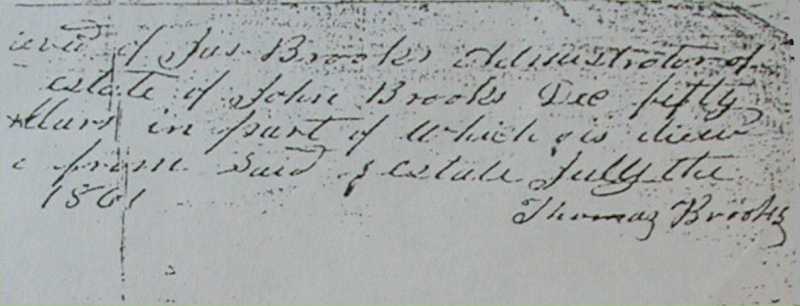 ieved of Jas Brooks Administrator of
estate of John Brooks Dec fifty
llars in part of which is due
e from Said estate July the
1861 Thomas Brooks